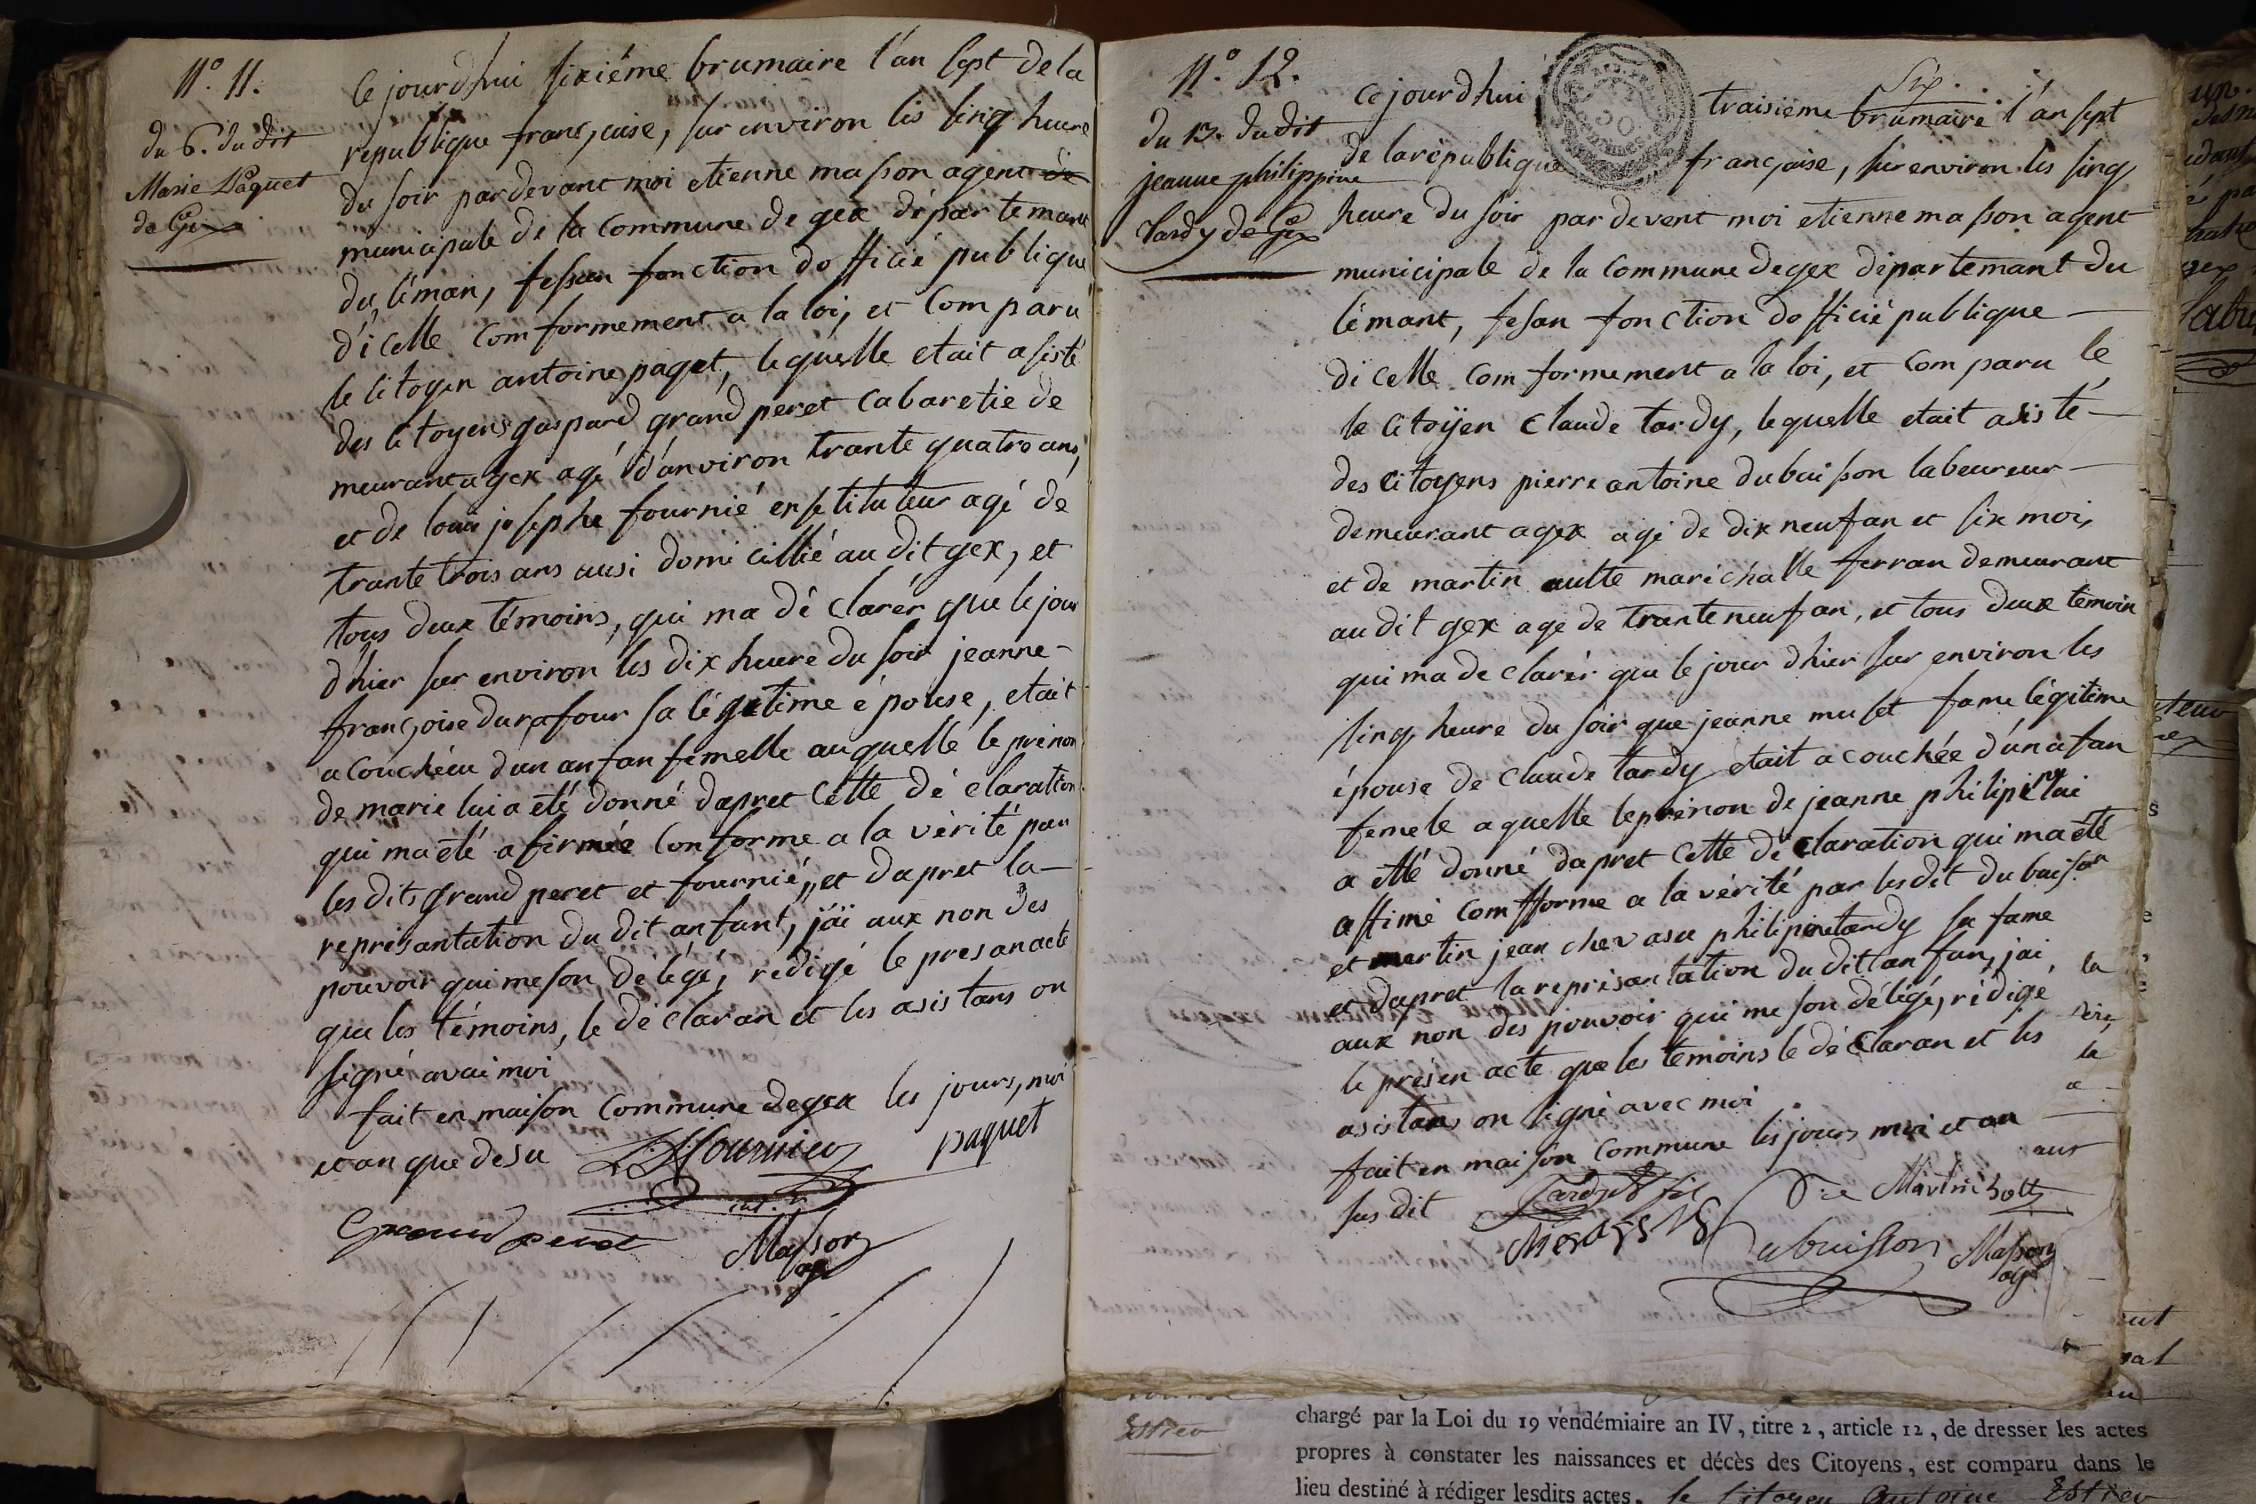 N.° 11.
du 6. dudit
Marie Paquet
de Gex
Ce jourd'hui sixiéme brumaire l'an sept de la
republique françoise, sur environ les sinq heure
du soir par devant moi etienne masson agent de
municipale de la Commune de gex départemant
du léman, fesan fonction dofficié publique
d'icelle comformement a la loi, et Comparu
le Citoyen antoine paget, lequélle etait asisté
des Citoyens gaspard grand peret Cabaretié de
meurant a gex agé d'anviron trante quatre ans,
et de louis josephe fournié enstituteur agé de
trante trois ans ausi domicillié au dit gex, et
tous deux témoins, qui ma dé clarér que le jour
d'hier sur environ les dix heure du soir jeanne-
françoise durafour sa légitime épouse, etait
acouchéee d'un anfan femelle auquelle le prénon
de marie lui a été donné dapret Cette dé claration
qui ma été afirmée Conforme a la vérité par
les dits grand peret et fournié,, et dapret la-
represantation du dit anfant, j'ai aux non des
pouvoir qui me son délégé, redigé le presan acte
que les témoins, le dé claran et les asistans on
signé avai moi
fait en maison Commune de gex les jours, moi
et an que desu
L. J. fournier
paquet
inst.r
Grand peret
Masson
agt
N.° 12.
du 13. dudit
jeanne philippine
Tardy de Gex
Ce jourd'hui traisième brumaire l'an sept
de la république française, sur environ les sinq
heure du soir par devent moi etienne masson agent
municipale de la Commune de gex départemant du
lémant, fesan fonction dofficié publique
dicelle comformement a la loi, et comparu le
le Citoÿen Claude tardy, lequelle etait asisté
des Citoyens pierre antoine dubuisson laboureur
demeurant a gex agé de dix neuf an et six mois
et de martin aulte marichalle ferran demeurant
au dit gex agé de trante neuf an, et tous deux temoin
qui ma de clarér que le jour d'hier sur environ les
sinq heure du soir que jeanne muset fame légitime
épouse de Claude tardy etait acouchée d'un afan
femele aquelle le prénon de jeanne philipine lui
a étté donné dapret Cette dé claration qui ma été
affimé comfforme a la vérité par les dit dubuison
et martin jean chevasu philipine tardy sa fame
et dapret la represantation du dit anfan, j'ai
aux non des pouvoir qui me son délégé, rédigé
le présen acte que les témoins le dé claran et les
asistans on signé avec moi
fait en maison Commune les jours moi et an
sus dit
Dubuisson
Masson
agt
chargé par la Loi du 19 vendémiaire an IV, titre 2, article 12, de dresser les actes
propres à constater les naissances et décès des Citoyens, est comparu dans le
lieu destiné à rédiger lesdits actes, le Citoyen Antoine